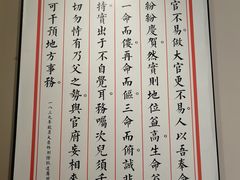 官不易做大官更不易人以吾奉命
紛紛慶賀然實則地位益高生命益
一命而僂再命而傴三命而俯誠非
持實出于不自覺耳務囑次兒須千
切勿恃有乃父之勢與官府妄相來
可干預地方事務